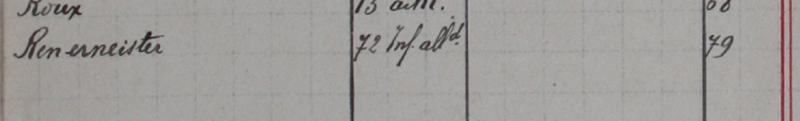 Roux 13 artil. 68
Renerneister 72 Inf. alld. 79